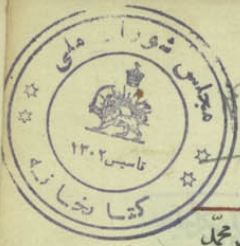 مجلس شورای ملی
تاسیس ۱۳۰۲
کتابخانه
محمّد